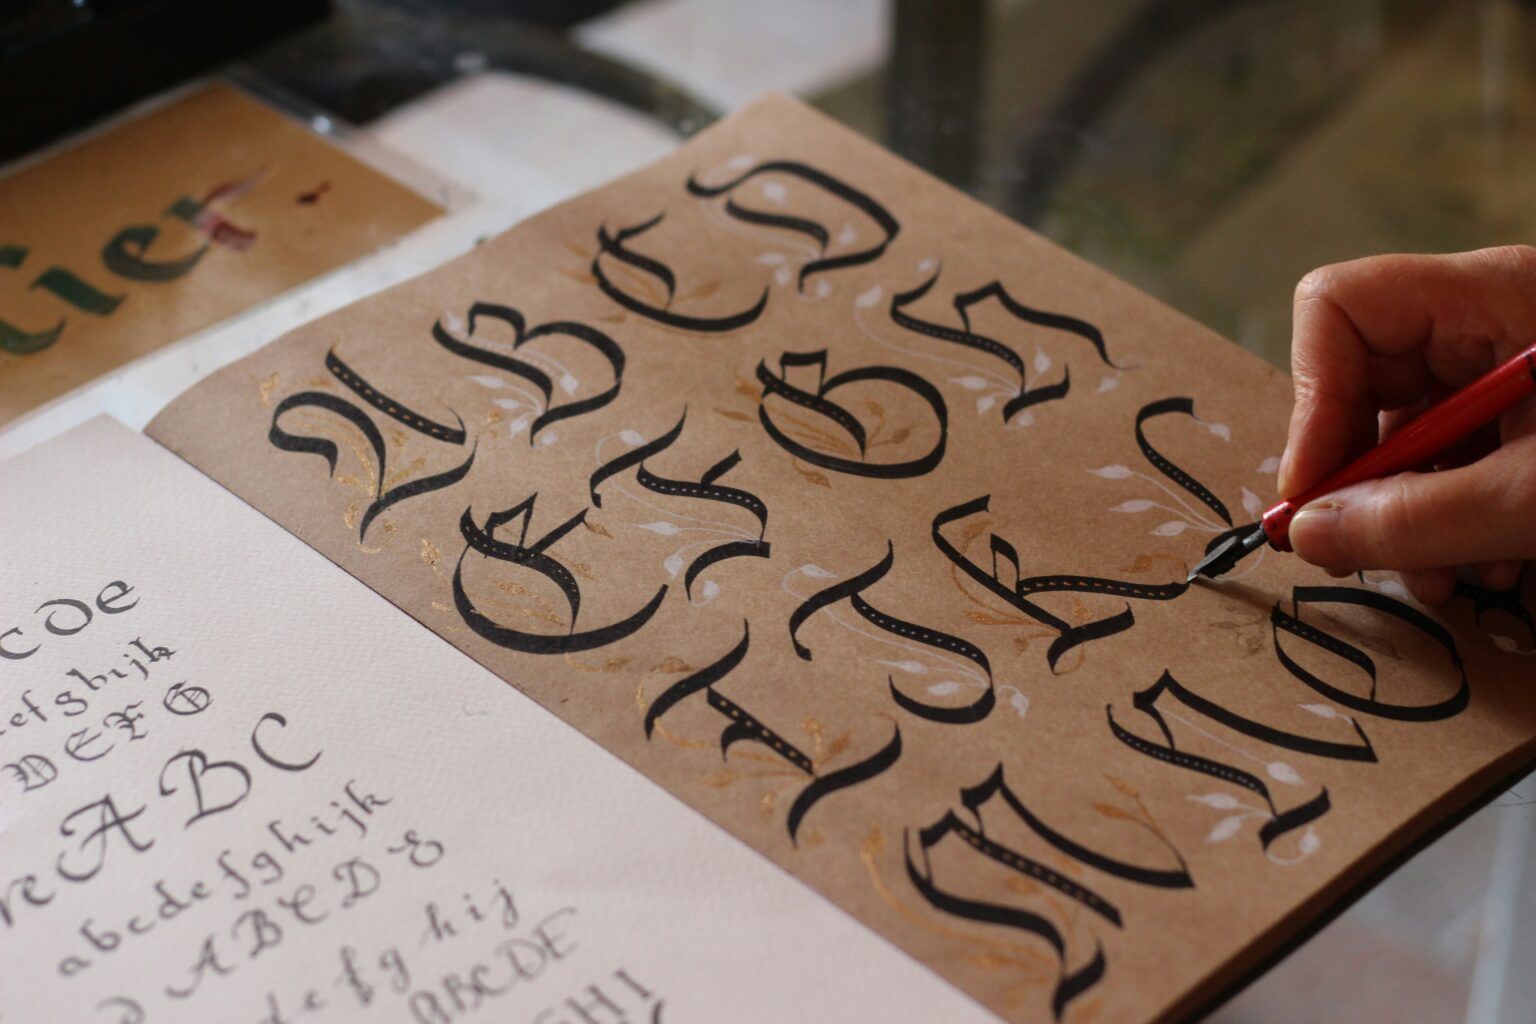 tier
A B C D
E F G H
I J K L
M N O
c de
efghijk
D E F G
re A B C
abcdefghijk
A B C D E
defghij
ABCDE
GHI